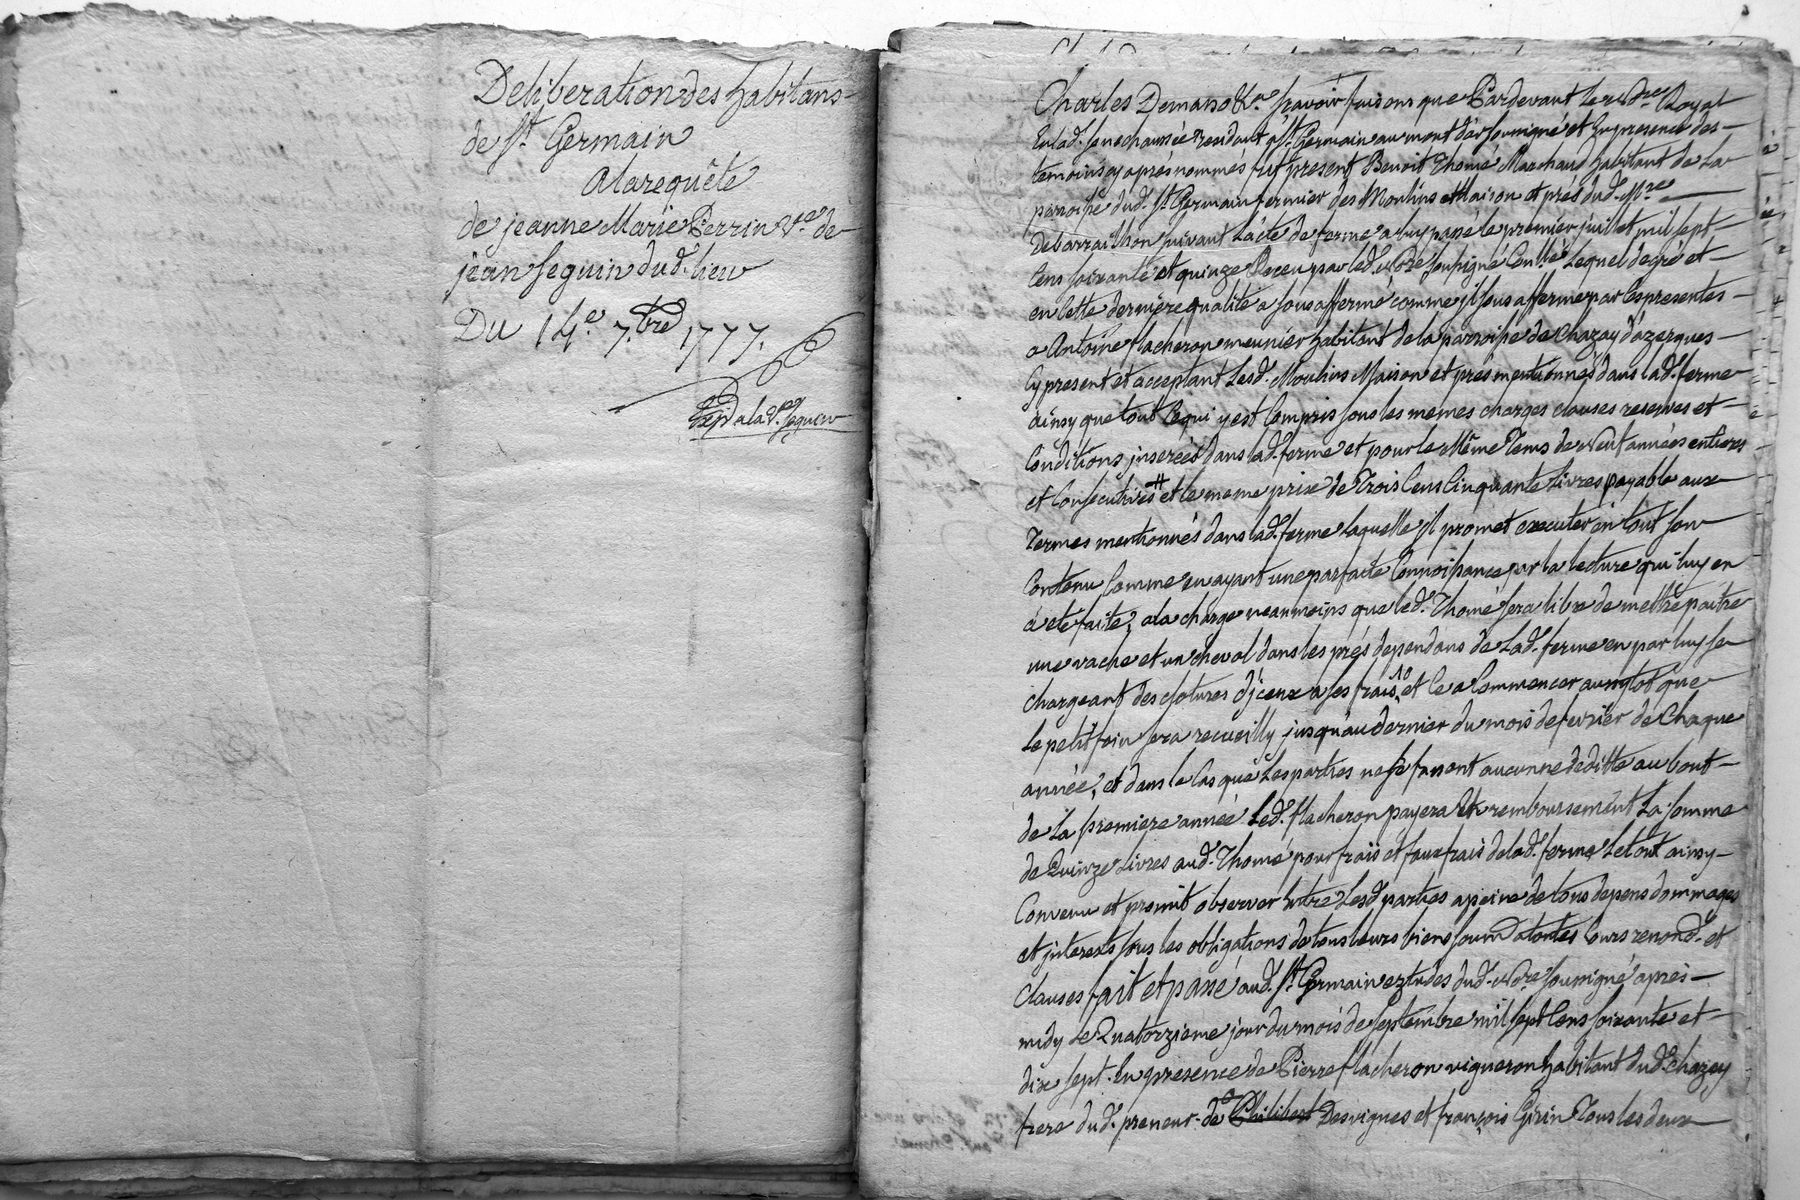 Deliberation des habitans
de St. Germain
A la requête
de jeanne Marie Perrin Ve. de
jean Seguin dud. lieu
Du 14e. 7.bre 1777.
Exp.d a la Ve. Seguin
Charles Demaso &ra. sçavoir faisons que Pardevant Le Nore. Royal
En lad. senechaussée resident a St. Germain au mont d'or soussigné et En presence des
temoins cy après nommés fut present Benoit Thomé Marchand habitant de La
paroisse dud. St. Germain fermier des Moulins Maison et près dud. Sr.
Debarraillhon suivant L'acte de ferme a luy passé le premier juillet mil sept
Cens soixante et quinze Receu par led. Nore soussigné Conllé Lequel de gré et
en Cette derniere qualité a sous affermé comme jl sous afferme par les presentes
a Antoine flacheron meunier habitant de la parroisse de Chazay d'azergues
Cy present et acceptant Lesd. Moulins Maison et près mentionnés dans lad. ferme
ainsy que tout Ce qui y est Compris sous les memes charges clauses reserves et
Conditions jnserées dans lad. ferme et pour le Même Tems de Neuf années entieres
et Consecutives # et le meme prix de Trois Cens Cinquante Livres payable aux
Termes mentionnés dans lad. ferme laquelle jl promet executer en tout son
Contenu Comme en ayant une parfaite Connoissance par la lecture qui luy en
a eté faite, a la charge neanmoins que led. Thomé sera libre de mettre paitre
une vache et un cheval dans les prés dependans de Lad. ferme en par luy se
chargeant des clotures d'jceux a ses frais, et ce a Commencer aussytot que
Le petit foin sera recueilly jusqu'au dernier du mois de fevrier de Chaque
année, et dans le Cas que Les parties ne se fassent aucunne déditte au bout
de La premiere année Led. flacheron payera En remboursement La somme
de Quinze Livres aud. Thomé pour frais et faux frais de lad. ferme Le tout ainsy
Convenu et promit observer Entre Lesd parties a peine de tous depens dommages
et jnterests sous les obligations de tous leurs biens soumd a toutes Cours renond. et
Clauses fait et passé aud. St. Germain eztudes dud. Nore soussigné après
midy Le Quatorzieme jour du mois de septembre mil sept Cens soixante et
dix sept. En presence de Pierre flacheron vigneron habitant dud. chazay
frere dud. preneur. de Philibert Desvignes et françois Girin Tous les deux